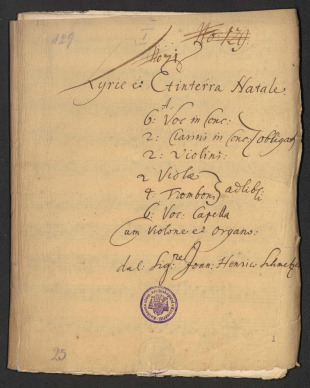 129
No: 129.
No 71
Kyrie è Et in terra Natale
â
6: Voc in Conc:
2: Clarini in Conc: obligati
2: Violini:
2 Violæ
4 Tromboni adlibiti
6: Voc: Capella
cum Violone è Organo:
dal: Sig:re Joan: Henrico Schmelzer
25
1